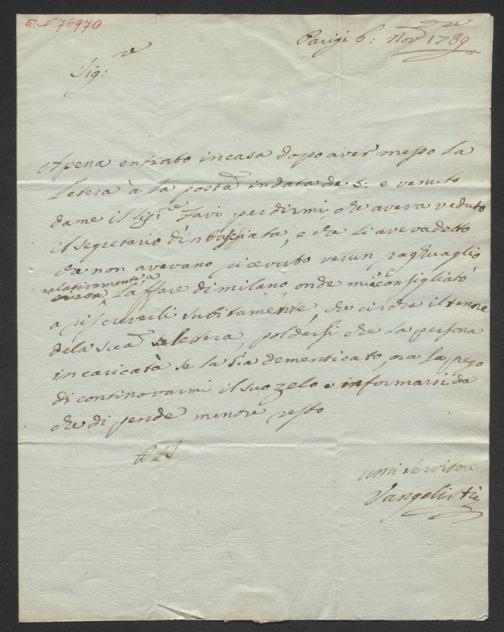 76970
Parigi 6: Nov.re 1789
Sig:re
Apena entrato in casa dopo aver messo la
letera à la posta in data de 5: e venuto
da me il Sig.re Favi per dirmi che aveva veduto
il segretario d'inbasciata, e che li aveva detto
che non avevano ricevuto verun ragguaglio
relativamente a
la ffare di milano, onde mi à consigliato
a riscriverli subitamente, che ci dia il tenore
dela sua letera, poldersi che la persona
incaricata se la sia dementicato, ora la prego
di continovarmi il suo zelo e informarsi da
che di pende mentre resto
umi servitore
Vangelisti